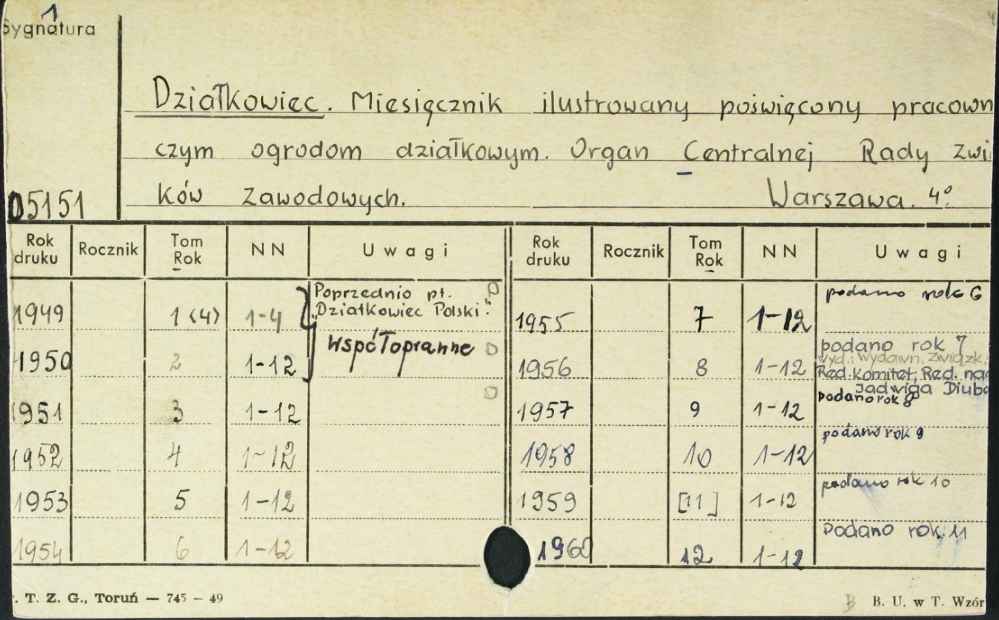 Sygnatura
Działkowiec. Miesięcznik ilustrowany poświęcony pracown
czym ogrodom działkowym. Organ Centralnej Rady Zwi
05151 ków Zawodowych. Warszawa. 4º
Rok druku Rocznik Tom Rok NN Uwagi Rok druku Rocznik Tom Rok NN Uwagi
1949 1(4) 1-4 Poprzednio pt. "Działkowiec Polski". 1955 7 1-12 podano rok 6
1950 2 1-12 Współoprawne 1956 8 1-12 podano rok 7
Wyd.: Wydawn. Związk.
Red. Komitet, Red. nac
Jadwiga Diuba
1951 3 1-12 1957 9 1-12 Podano rok 8
1952 4 1-12 1958 10 1-12 podano rok 9
1953 5 1-12 1959 [11] 1-12 podano rok 10
1954 6 1-12 1960 12 1-12 Podano rok 11
. T. Z. G., Toruń — 745 – 49 B B. U. w T. Wzór